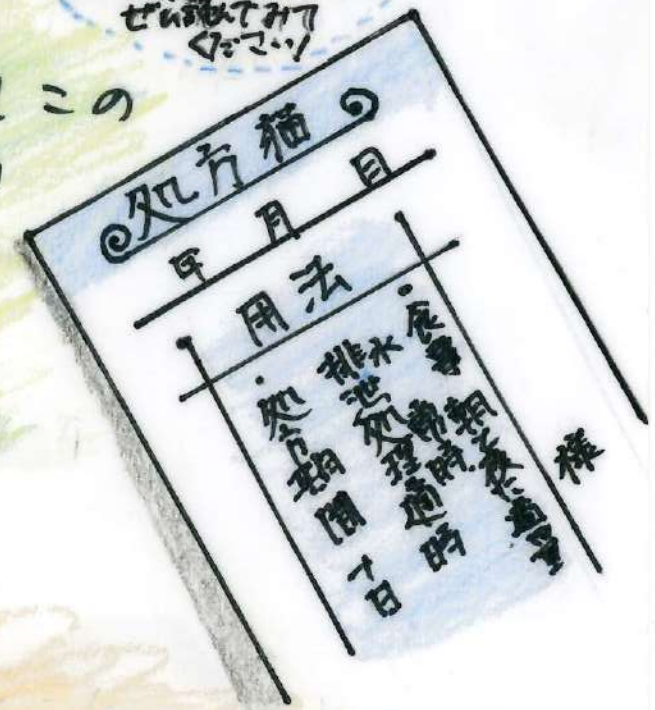 ぜひ読んでみて
ください!
この
処方猫
年 月 日
様
用法
・食事 朝と夜に適量
水 常時
排泄処理適時
・処方期間 十日